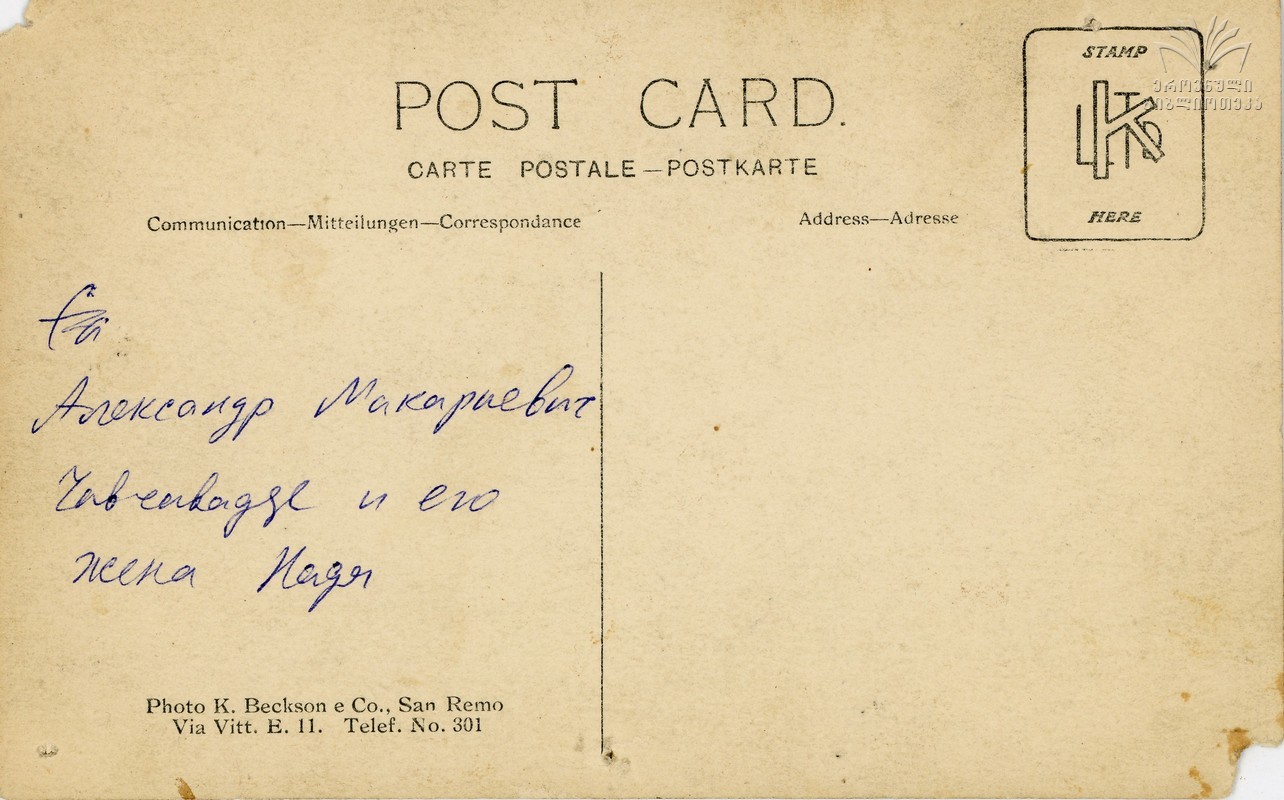 POST CARD.
CARTE POSTALE—POSTKARTE
Communication—Mitteilungen—Correspondance
Address—Adresse
STAMP
HERE
ეროვნული
ბიბლიოთეკა
Александр Макариевич
Чавчавадзе и его
жена Надя
Photo K. Beckson e Co., San Remo
Via Vitt. E. 11. Telef. No. 301